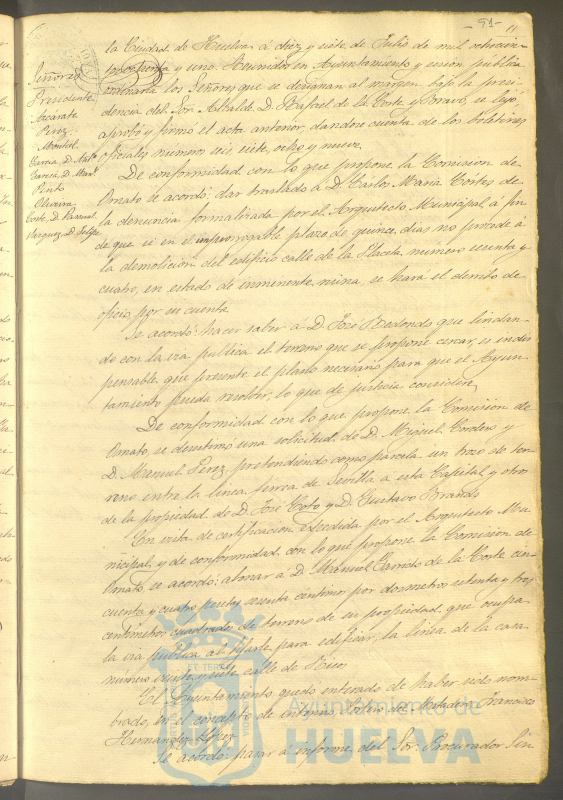 - 91 -
11
Señores
Presidente
Azcarate
Perez
Montiel
Garcia, D. Anto
Garcia, D. Manl
Pinto
Oliveira
Corte, D. Manuel
Vazquez, D. Felipe
la Ciudad de Huelva á diez y siete de Julio de mil ochocien-
y uno. Reunidos en Ayuntamiento y sesion publica
ordinaria los Señores que se designan al margen bajo la presi-
dencia del Sor. Alcalde D. Rafael de la Corte y Bravo, se leyó,
aprobó y firmó el acta anterior, dandose cuenta de los boletines
oficiales numeros seis, siete, ocho y nueve.
De conformidad con lo que propone la Comision de
Ornato se acordó: dar traslado á D. Cárlos Maria Cortes de
la denuncia formalizada por el Arquitecto Municipal á fin
de que si en el improrrogable plazo de quince dias no procede á
la demolicion del edificio calle de la Placeta, numero sesenta y
cuatro, en estado de inminente ruina, se hará el derribo de
oficio por su cuenta.
Se acordó: hacer saber á D. José Redondo que lindan-
do con la via publica el terreno que se propone cercar, es indis-
pensable que presente el plano necesario para que el Ayun-
tamiento pueda resolver, lo que de justicia considere,
De conformidad con lo que propone la Comision de
Ornato, se desestimó una solicitud de D. Miguel Cordero y
D. Manuel Perez, pretendiendo como parcela un trozo de ter-
reno entre la linea ferrea de Sevilla a esta Capital y otro
de la propiedad de D. José Coto y D. Gustavo Brandt
En vista de certificacion espedida por el Arquitecto Mu-
nicipal, y de conformidad con lo que propone la Comision de
Ornato, se acordó: abonar á D. Manuel Garrido de la Corte cin-
cuenta y cuatro pesetas sesenta centimos por dos metros setenta y tres
centimetros cuadrados de terreno de su propiedad, que ocupa
la via publica al fijarle para edificar, la linea de la casa
numero veinte y siete calle de Rico.
El Ayuntamiento quedó enterado de haber sido nom-
brado, en el concepto de interino, Francisco
Hernandez Lopez
Se acordó: pasar á informe del Sor. Procurador Sin-
Ayuntamiento de
HUELVA